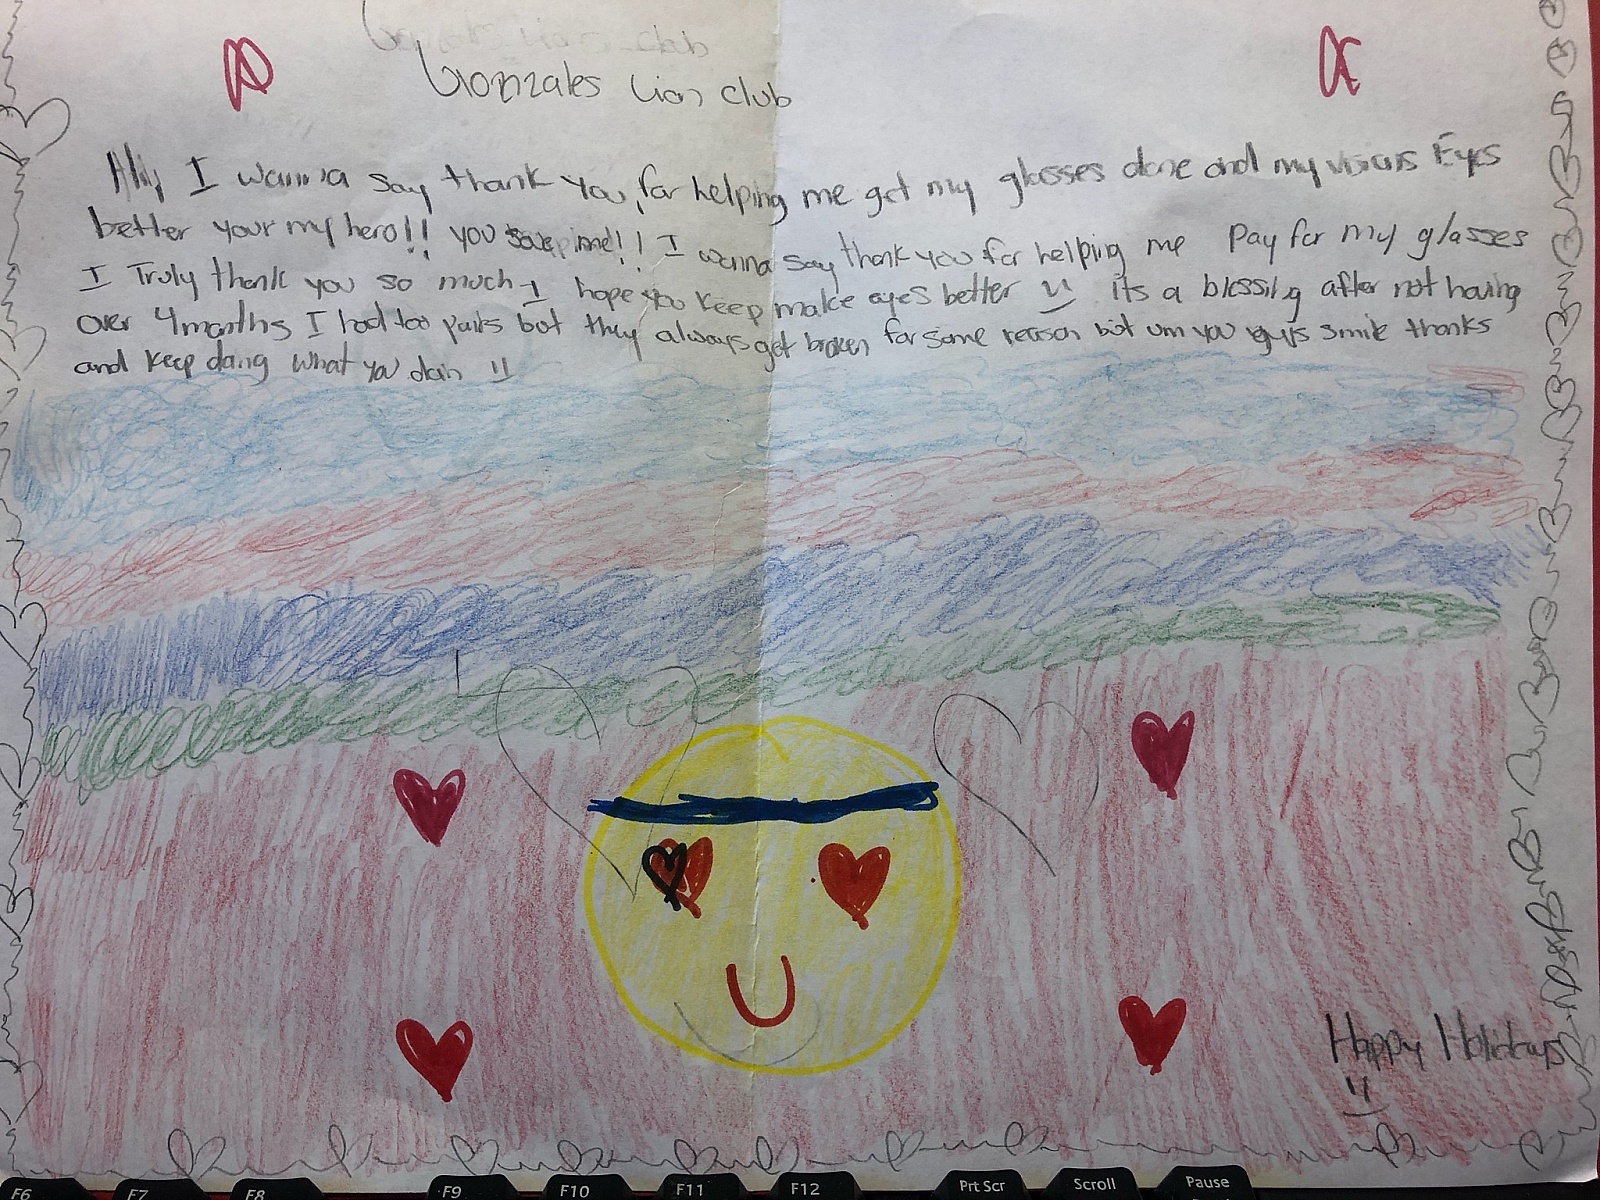 Gonzales Lion Club
Gonzales Lion club
Hiy I wanna say thank you, for helping me get my glasses done and my visions Eyes
better your my hero!! you save me!! I wanna say thank you for helping me Pay for my glasses
I Truly thank you so much I hope you keep make eyes better its a blessing after not having
over 4 months I had too pairs but they always get broken for some reason but um you guys smile thanks
and keep doing what you doin
Happy Holidays
F6 F7 F8 F9 F10 F11 F12 Prt Scr Scroll Pause